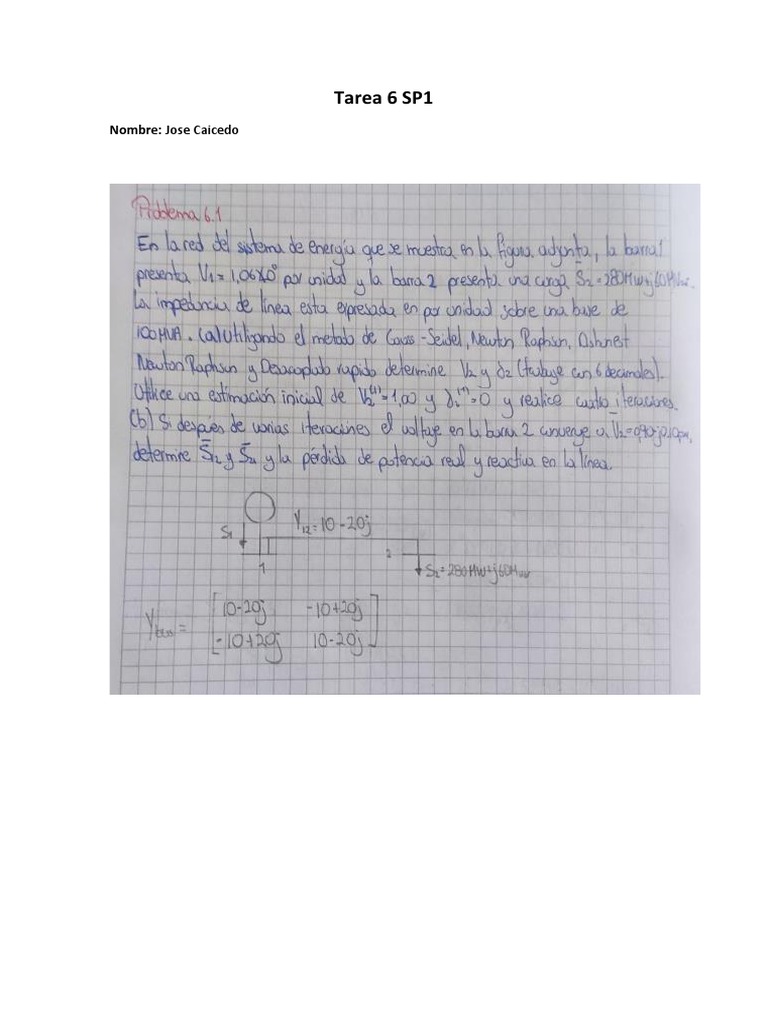 Tarea 6 SP1
Nombre: Jose Caicedo
Problema 6.1
En la red del sistema de energía que se muestra en la figura adjunta, la barra 1
presenta V1=1,06∠0° por unidad y la barra 2 presenta una carga S2=280MW+j60MVar.
La impedancia de línea esta expresada en por unidad sobre una base de
100MVA. (a) Utilizando el metodo de Gauss-Seidel, Newton Raphson, Dishonest
Newton Raphson y Desacoplado rapido determine V2 y δ2 (trabaje con 6 decimales).
Utilice una estimación inicial de V2=1,00 y δ2=0 y realice cuatro iteraciones.
(b) Si después de varias iteraciones el voltaje en la barra 2 converge a V2=0,90-j0,10pu,
determine S12 y S21 y la pérdida de potencia real y reactiva en la línea.
S1 Y12=10-20j
1 2 S2=280MW+j60Mvar
Ybus = [10-20j -10+20j
-10+20j 10-20j]